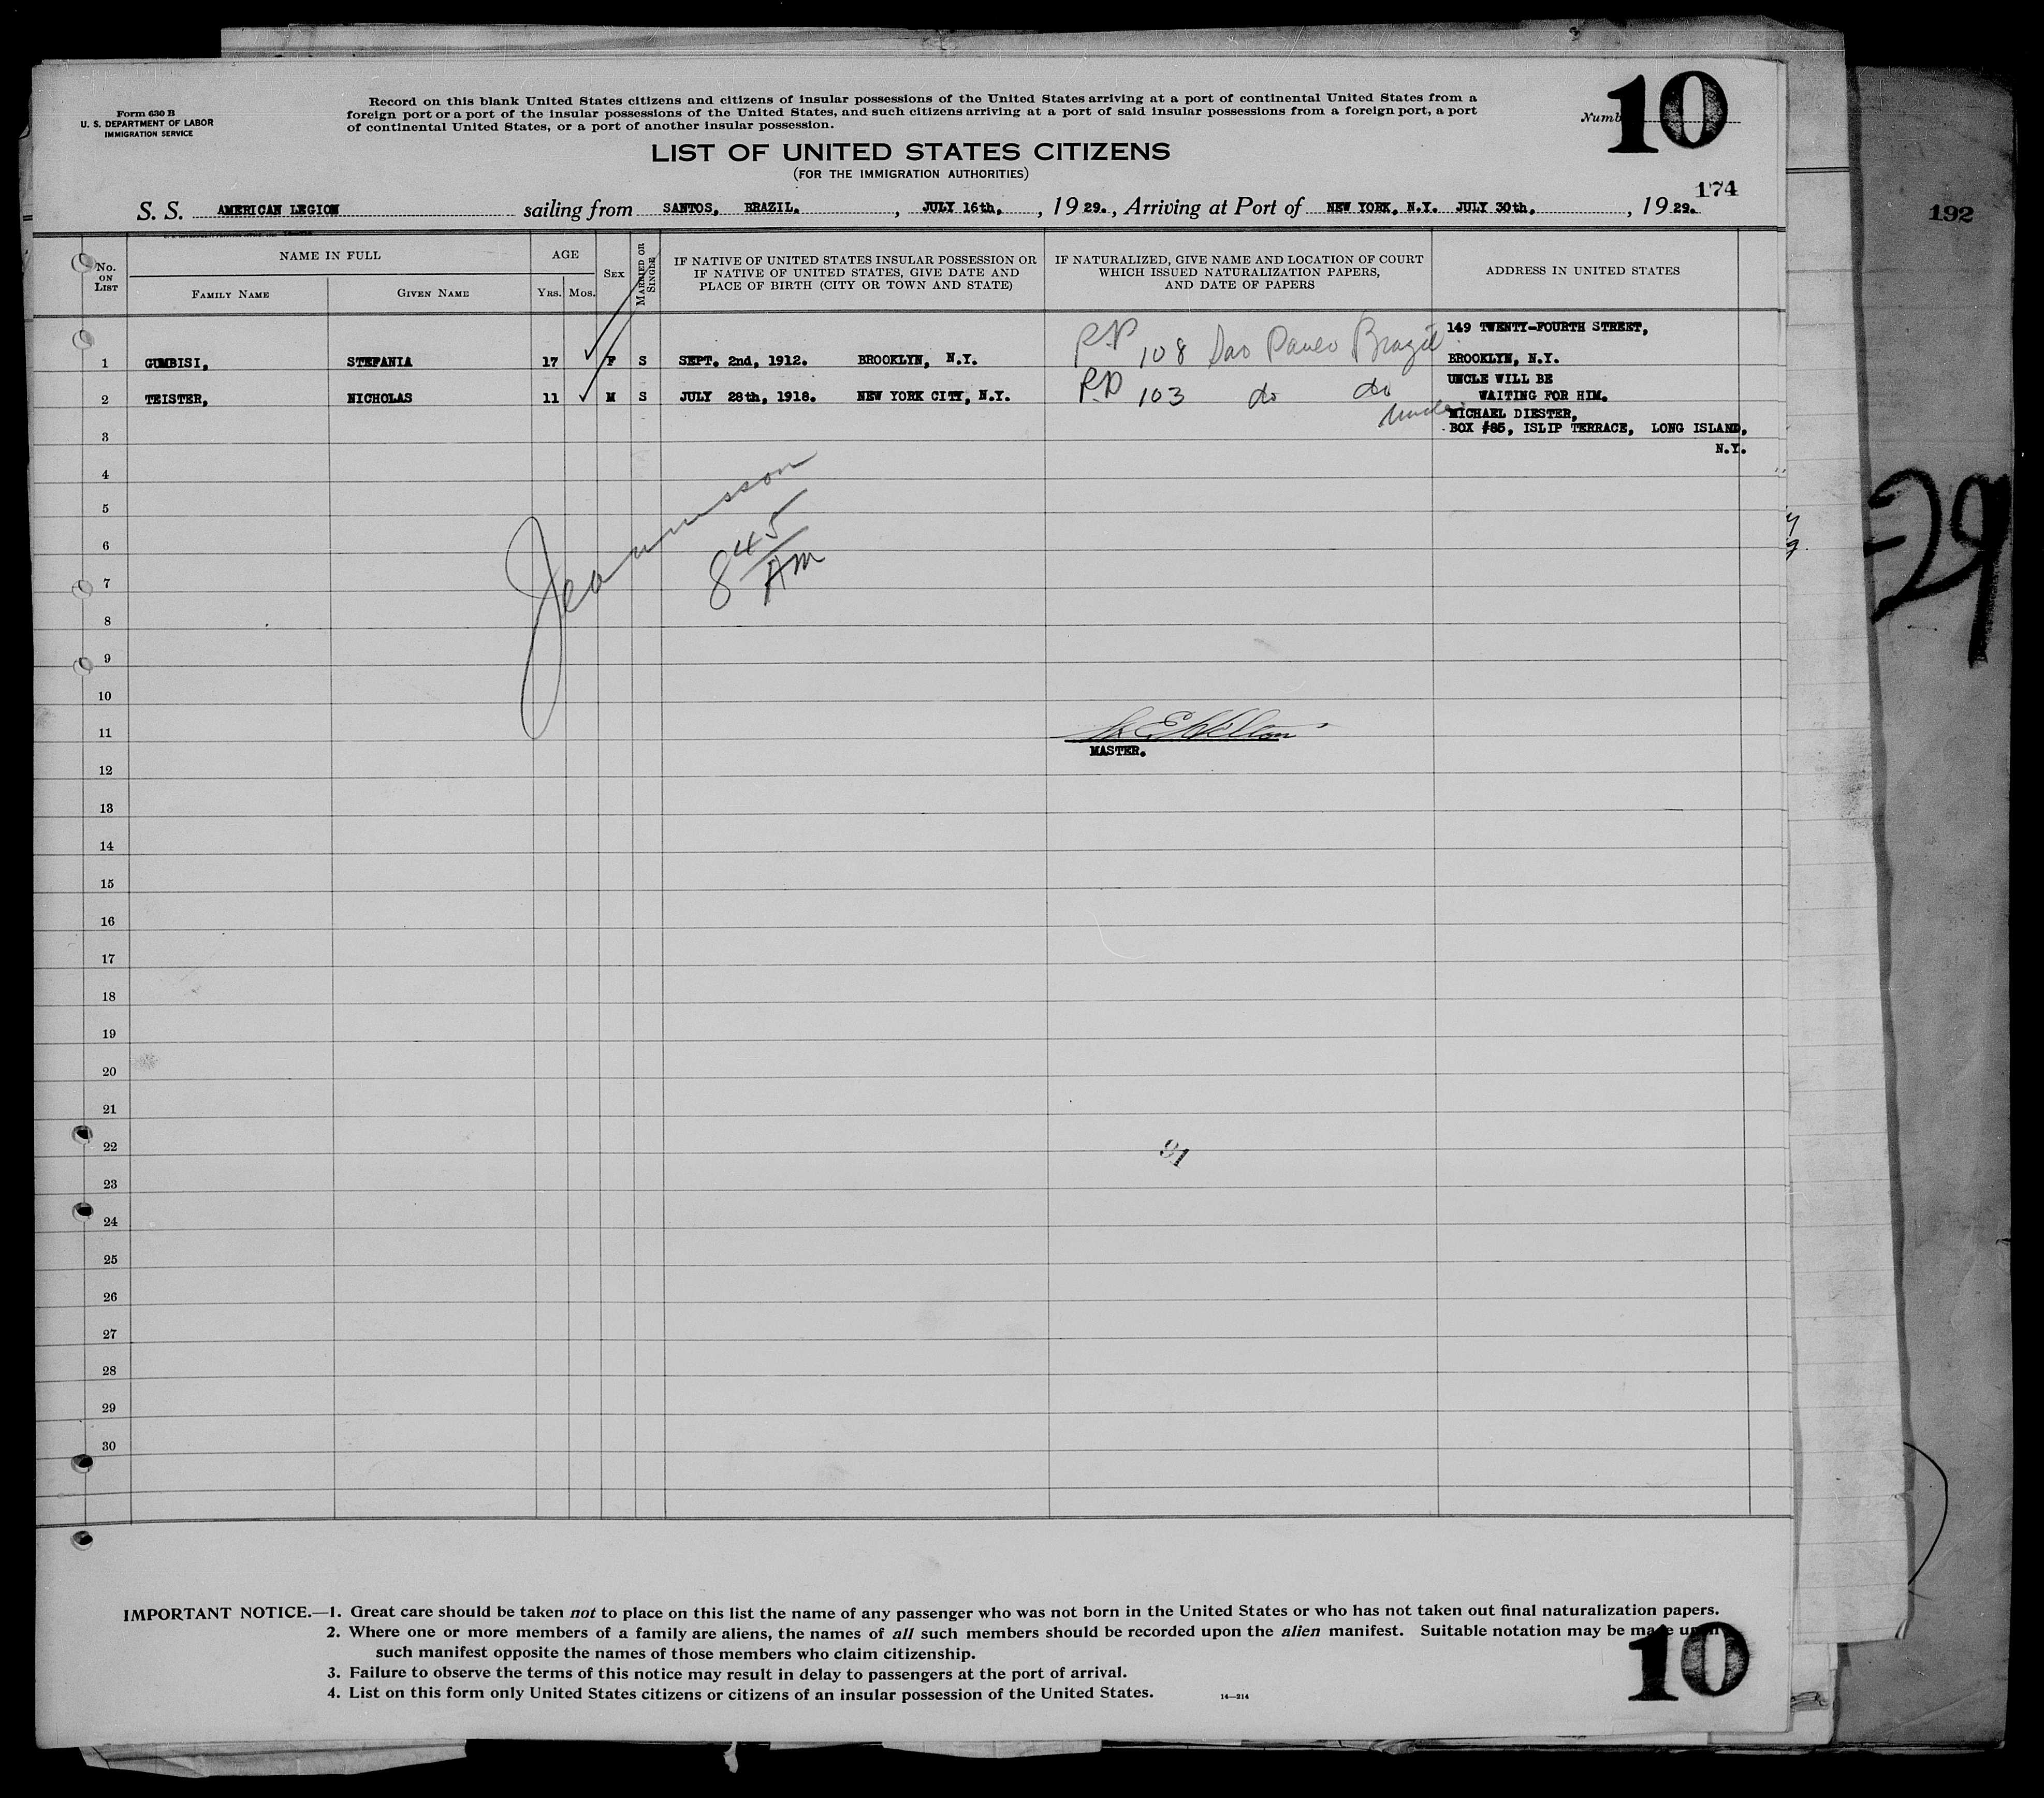 Form 630 B
U. S. DEPARTMENT OF LABOR
IMMIGRATION SERVICE
Record on this blank United States citizens and citizens of insular possessions of the United States arriving at a port of continental United States from a
foreign port or a port of the insular possessions of the United States, and such citizens arriving at a port of said insular possessions from a foreign port, a port
of continental United States, or a port of another insular possession.
10
LIST OF UNITED STATES CITIZENS
(FOR THE IMMIGRATION AUTHORITIES)
174
192
S. S. AMERICAN LEGION sailing from SANTOS, BRAZIL. , JULY 16th, , 1929. , Arriving at Port of NEW YORK, N.Y. JULY 30th, , 1929.
No. ON LIST
NAME IN FULL
FAMILY NAME
GIVEN NAME
AGE
YRS. MOS.
SEX
MARRIED OR SINGLE
IF NATIVE OF UNITED STATES INSULAR POSSESSION OR
IF NATIVE OF UNITED STATES, GIVE DATE AND
PLACE OF BIRTH (CITY OR TOWN AND STATE)
IF NATURALIZED, GIVE NAME AND LOCATION OF COURT
WHICH ISSUED NATURALIZATION PAPERS,
AND DATE OF PAPERS
ADDRESS IN UNITED STATES
149 TWENTY-FOURTH STREET,
1 GUMBISI, STEFANIA 17 F S SEPT. 2nd, 1912. BROOKLYN, N.Y. P.P 108 Sao Paulo Brazil BROOKLYN, N.Y.
UNCLE WILL BE
2 TEISTER, NICHOLAS 11 M S JULY 28th, 1918. NEW YORK CITY, N.Y. P.P 103 do do WAITING FOR HIM.
Uncle MICHAEL DIESTER,
3 BOX #85, ISLIP TERRACE, LONG ISLAND,
N.Y.
4
5
6
8 45 AM
7
8
9
10
11
MASTER.
12
13
14
15
16
17
18
19
20
21
22
23
24
25
26
27
28
29
30
29
IMPORTANT NOTICE.—1. Great care should be taken not to place on this list the name of any passenger who was not born in the United States or who has not taken out final naturalization papers.
2. Where one or more members of a family are aliens, the names of all such members should be recorded upon the alien manifest. Suitable notation may be made upon
such manifest opposite the names of those members who claim citizenship.
3. Failure to observe the terms of this notice may result in delay to passengers at the port of arrival.
4. List on this form only United States citizens or citizens of an insular possession of the United States. 14—214
10